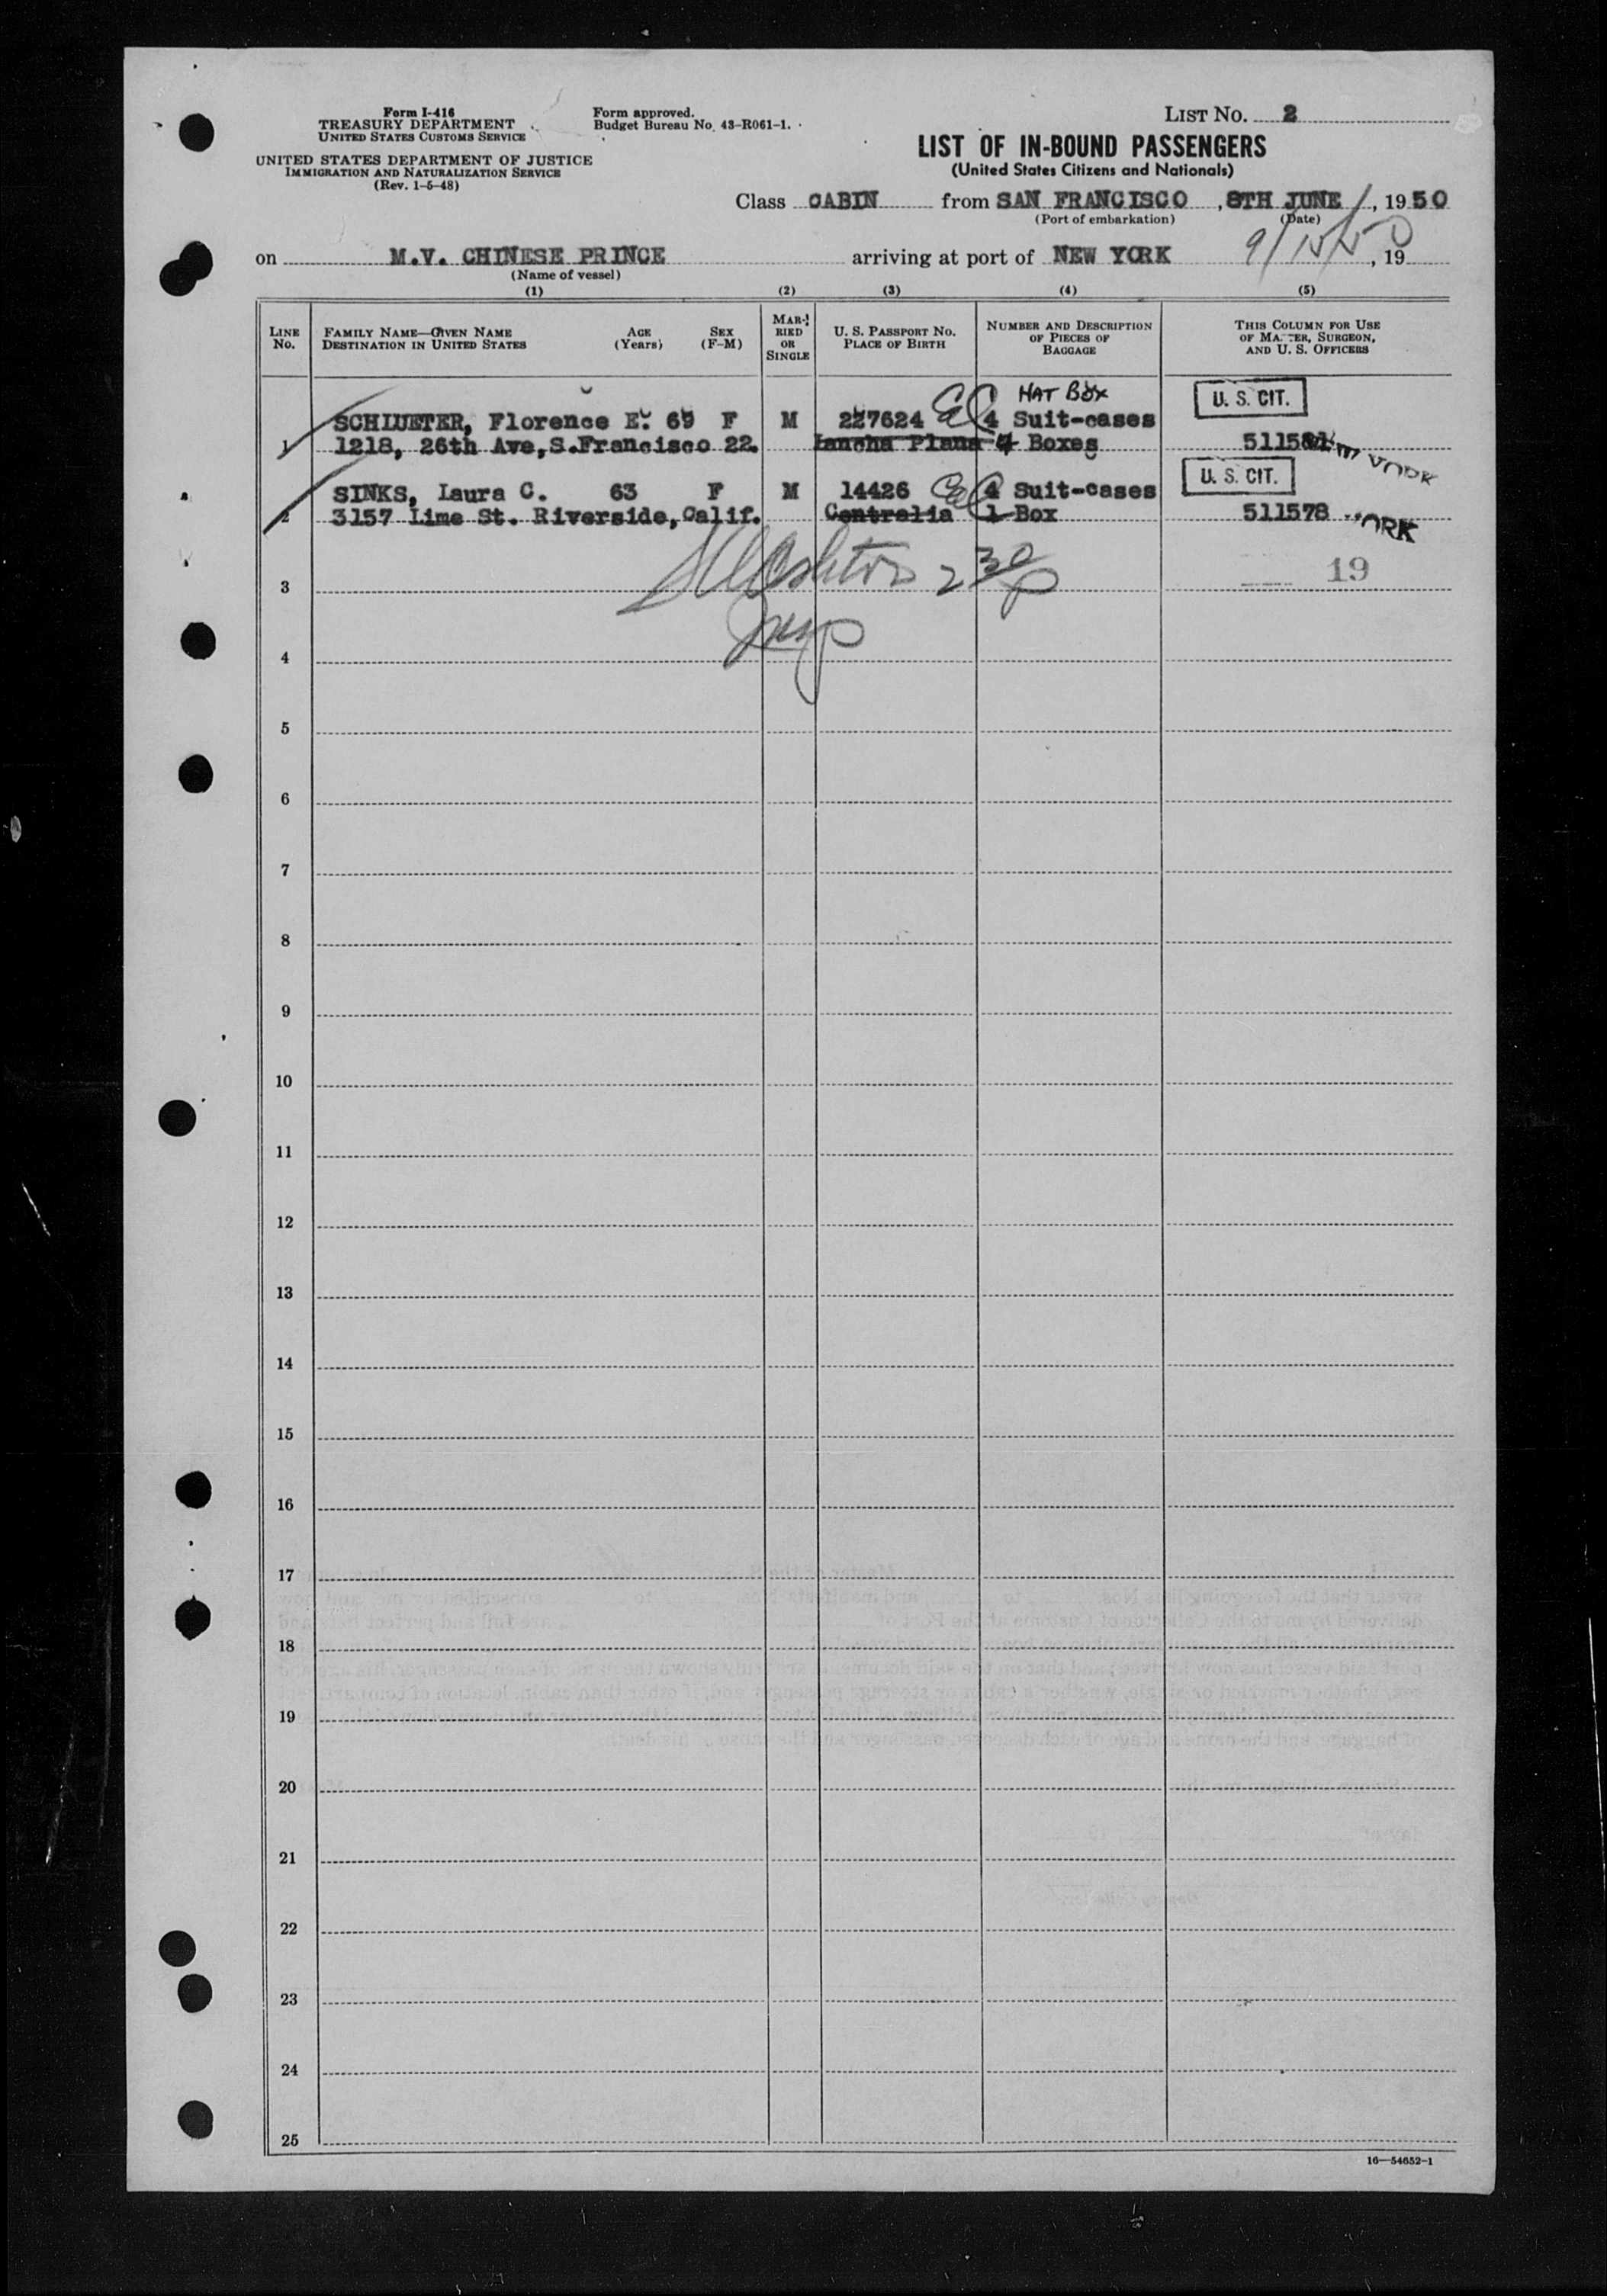 Form I-416
TREASURY DEPARTMENT
UNITED STATES CUSTOMS SERVICE
UNITED STATES DEPARTMENT OF JUSTICE
IMMIGRATION AND NATURALIZATION SERVICE
(Rev. 1-5-48)
Form approved.
Budget Bureau No. 43-R061-1.
LIST NO. 2
LIST OF IN-BOUND PASSENGERS
(United States Citizens and Nationals)
Class CABIN from SAN FRANCISCO, 8TH JUNE, 1950
(Port of embarkation) (Date)
on M.V. CHINESE PRINCE arriving at port of NEW YORK 9/15/50, 19
(Name of vessel)
(1) (2) (3) (4) (5)
LINE NO.
FAMILY NAME—GIVEN NAME
DESTINATION IN UNITED STATES
AGE (Years)
SEX (F-M)
MARRIED OR SINGLE
U. S. PASSPORT NO.
PLACE OF BIRTH
NUMBER AND DESCRIPTION OF PIECES OF BAGGAGE
THIS COLUMN FOR USE OF MASTER, SURGEON, AND U. S. OFFICERS
HAT BOX
U. S. CIT.
SCHLUETER, Florence E. 69 F M 227624 4 Suit-cases
1 1218, 26th Ave, S.Francisco 22. Lancha Plana 4 Boxes 511581 NEW YORK
U. S. CIT.
SINKS, Laura C. 63 F M 14426 4 Suit-cases
2 3157 Lime St. Riverside, Calif. Centralia 1 Box 511578 YORK
230p
3 19
4
5
6
7
8
9
10
11
12
13
14
15
16
17
18
19
20
21
22
23
24
25
16—54652-1